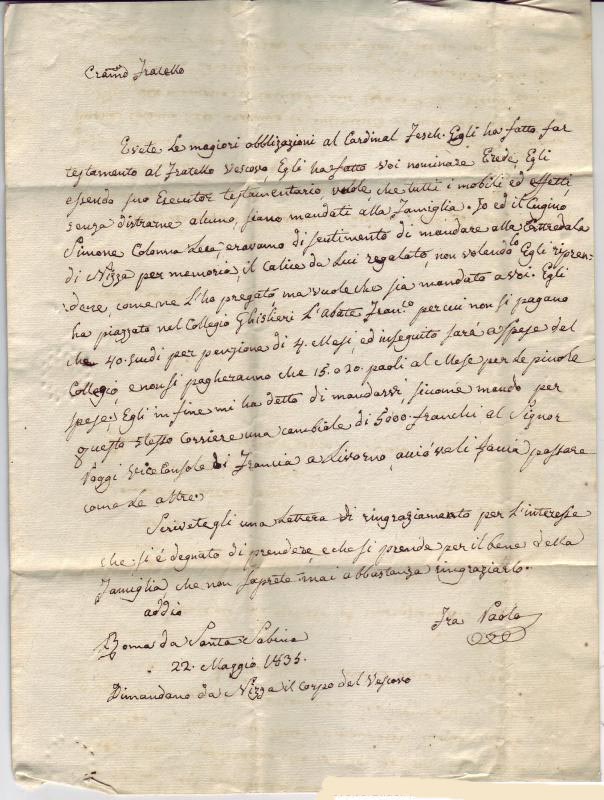 Cra͞mo Fratello
Evete le magiori obbligazioni al Cardinal Fesch. Egli ha fatto far
testamento al Fratello Vescovo, Egli ha fatto voi nominare Erede, Egli
essendo suo Esecutor testamentario vuole, che tutti i mobili ed effetti
senza distrarne alcuno, siano mandati alla Famiglia. Io ed il Cugino
Simone Colonna Leca, eravamo di sentimento di mandare alla Cattedrala
di Nizza per memoria, il calice da Lui regalato, non volendolo Egli ripren-
dere, come ne l'ho pregato, ma vuole che sia mandato a voi. Egli
ha piazzato nel Collegio Ghislieri L'Abate Fran.co per cui non si pagano
che 40. Scudi per penzione di 4. Mesi, ed inseguito sarà a spese del
Collegio, e non si pagheranno che 15. o 20. paoli al Mese per le picole
spese. Egli in fine mi ha detto di mandarvi, sicome mando per
questo stesso corriere una cambiale di 5000. franchi al Signor
Poggi Vice Console di Francia a Livorno, acciò ve li facia passare
come le altre.
Scrivetegli una Lettera di ringraziamento per l'interesse
che si è degnato di prendere, e che si prende per il bene della
Famiglia, che non saprete mai abbastanza ringraziarlo.
addio
Fra Paolo
Roma da Santa Sabina
22. Maggio 1835.
Dimandano da Nizza il corpo del Vescovo